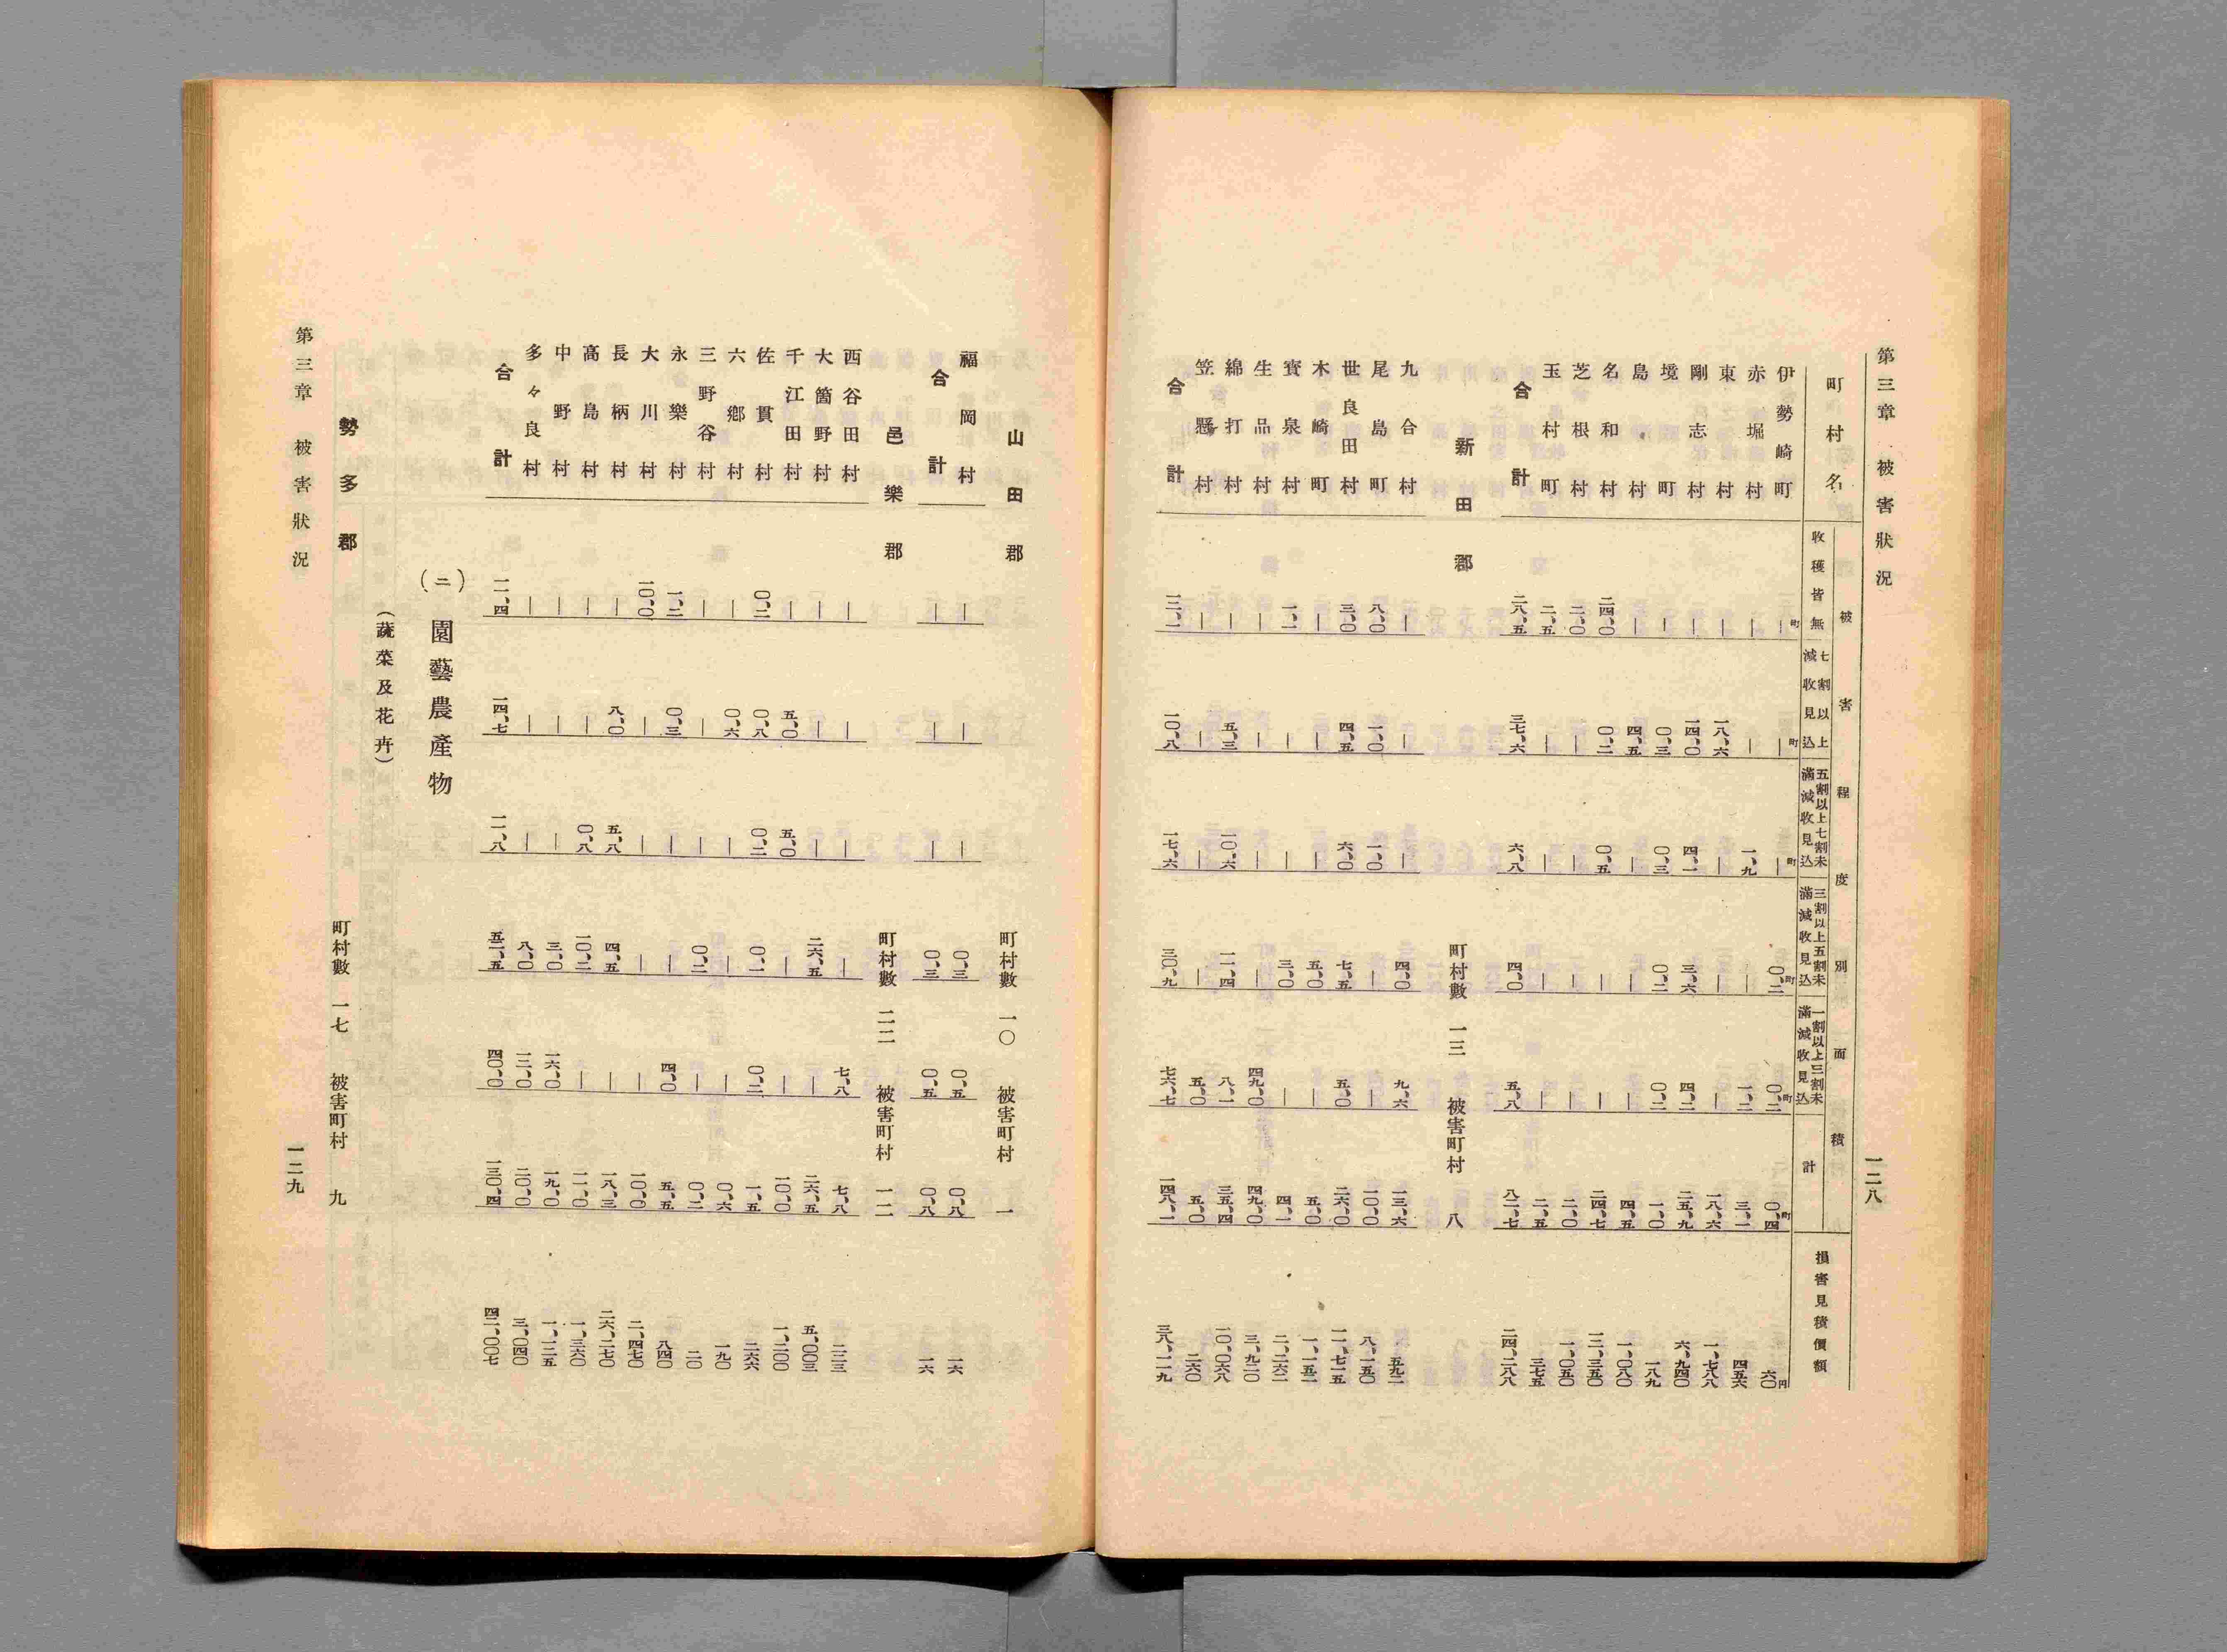 第三章 被害狀況 一二八
町村名 被害程度別面積 損害見積價額
收穫皆無 七割以上減收見込 五割以上七割未滿減收見込 三割以上五割未滿減收見込 一割以上三割未滿減收見込 計
伊勢崎町 ―町 ―町 ―町 〇、二町 〇、二町 〇、四町 六〇円
赤堀村 ― ― 一、九 ― 一、二 三、一 四五六
東村 ― 一八、六 ― ― ― 一八、六 一、七八八
剛志村 ― 一四、〇 四、一 三、六 四、二 二五、九 六、九四〇
境町 ― 〇、三 〇、三 〇、二 〇、二 一、〇 一八九
島村 ― 四、五 ― ― ― 四、五 一、〇八〇
名和村 二四、〇 〇、二 〇、五 ― ― 二四、七 一二、三五〇
芝根村 二、〇 ― ― ― ― 二、〇 一、〇五〇
玉村町 二、五 ― ― ― ― 二、五 三七五
合計 二八、五 三七、六 六、八 四、〇 五、八 八二、七 二四、二八八
新田郡 町村數 一三 被害町村 八
九合村 ― ― ― 四、〇 九、六 一三、六 五九二
尾島町 八、〇 一、〇 一、〇 ― ― 一〇、〇 八、一五〇
世良田村 三、〇 四、五 六、〇 七、五 五、〇 二六、〇 一一、七一五
木崎町 ― ― ― 五、〇 ― 五、〇 一、一五二
寶泉村 一、一 ― ― 三、〇 ― 四、一 二、二六二
生品村 ― ― ― ― 四九、〇 四九、〇 三、九二〇
綿打村 ― 五、三 一〇、六 一一、四 八、一 三五、四 一〇、〇六八
笠懸村 ― ― ― ― 五、〇 五、〇 二六〇
合計 一二、一 一〇、八 一七、六 三〇、九 七六、七 一四八、一 三八、一一九
山田郡 町村數 一〇 被害町村 一
福岡村 ― ― ― 〇、三 〇、五 〇、八 一六
合計 ― ― ― 〇、三 〇、五 〇、八 一六
邑樂郡 町村數 二二 被害町村 一二
西谷田村 ― ― ― ― 七、八 七、八 二二三
大箇野村 ― ― ― 二六、五 ― 二六、五 五、〇〇三
千江田村 ― 五、〇 五、〇 ― ― 一〇、〇 一、二〇〇
佐貫村 〇、二 〇、八 〇、二 〇、一 〇、二 一、五 二六六
六鄉村 ― 〇、六 ― ― ― 〇、六 一九〇
三野谷村 ― ― ― 〇、二 ― 〇、二 二〇
永樂村 一、二 〇、三 ― ― 四、〇 五、五 八四〇
大川村 一〇、〇 ― ― ― ― 一〇、〇 二、四七〇
長柄村 ― 八、〇 五、八 四、五 ― 一八、三 二六、二七〇
高島村 ― ― 〇、八 一〇、二 ― 一一、〇 一、三六〇
中野村 ― ― ― 三、〇 一六、〇 一九、〇 一、一二五
多々良村 ― ― ― 八、〇 一二、〇 二〇、〇 三、〇四〇
合計 一一、四 一四、七 一一、八 五二、五 四〇、〇 一三〇、四 四二、〇〇七
(二) 園藝農產物
(蔬菜及花卉)
勢多郡 町村數 一七 被害町村 九
第三章 被害狀況 一二九